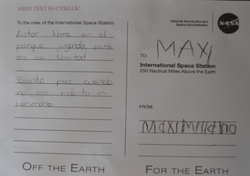 NEED TEXT IN CYRILLIC
To the crew of the International Space Station:
Estar libre en el
parque jugando
en su libertad
Siento paz cuando
no
National Aeronautics and
Space Administration
NASA
TO:
MAXi
International Space Station
250 Nautical Miles Above the Earth
FROM:
Maximiliano
OFF THE EARTH
FOR THE EARTH